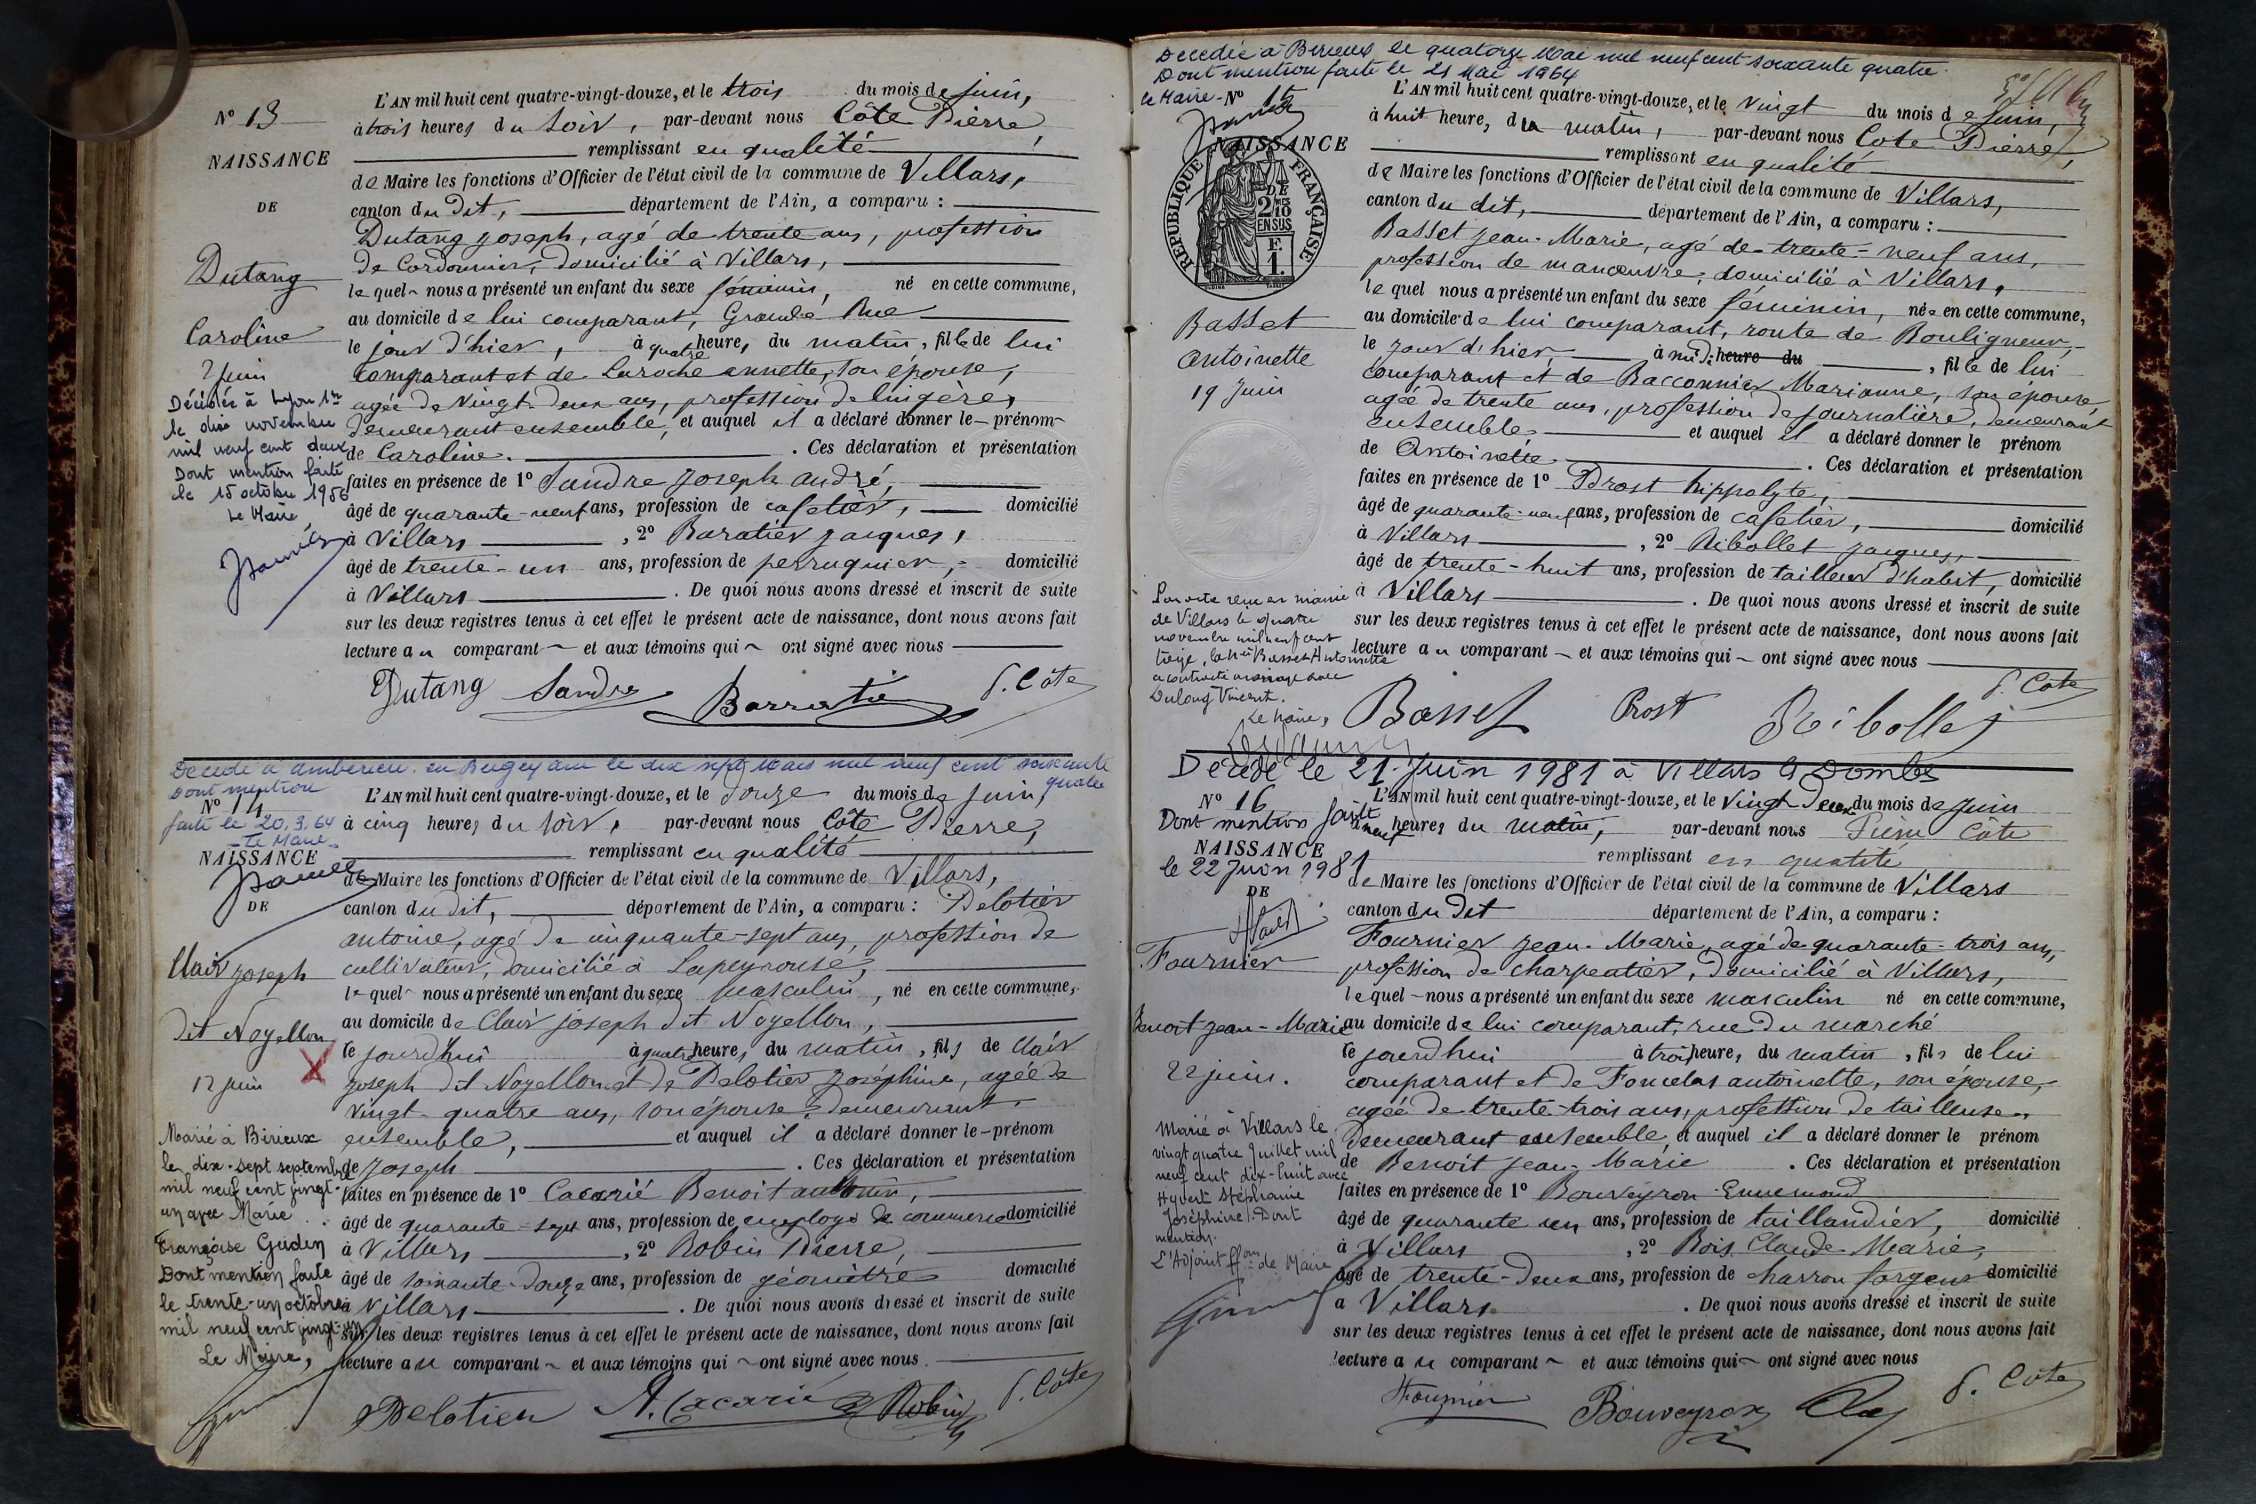 N° 13
NAISSANCE
DE
Dutang
Caroline
2 juin
Décédée à Lyon 1er
le dix novembre
mil neuf cent deux
Dont mention faite
le 15 octobre 1956
Le Maire
L'AN mil huit cent quatre-vingt-douze, et le trois du mois de juin,
à trois heures du soir, par-devant nous Côte Pierre,
remplissant en qualité
de Maire les fonctions d'Officier de l'état civil de la commune de Villars,
canton du dit, département de l'Ain, a comparu :
Dutang Joseph, agé de trente ans, profession
de Cordonnier, domicilié à Villars,
lequel nous a présenté un enfant du sexe féminin, né en cette commune,
au domicile de lui comparant, Grande Rue
le jour d'hier, à quatre heures du matin, fille de lui
comparant et de Laroche annette, son épouse,
agée de Vingt-deux ans, profession de lingère,
demeurant ensemble, et auquel il a déclaré donner le prénom
de Caroline. . Ces déclaration et présentation
faites en présence de 1° Sandre Joseph andré,
âgé de quarante-neuf ans, profession de cafetier, domicilié
à Villars , 2° Baratier jacques,
âgé de trente-un ans, profession de perruquier, domicilié
à Villars . De quoi nous avons dressé et inscrit de suite
sur les deux registres tenus à cet effet le présent acte de naissance, dont nous avons fait
lecture au comparant et aux témoins qui ont signé avec nous
Dutang Sandre Barratié P. Côte
Décédé à ambérieu en Bugey ain le dix sept Mars mil neuf cent soixante
quatre
Dont mention
N° 14
faite le 20.3.64
Le Maire
NAISSANCE
DE
Clair Joseph
dit Noyellon
X
12 juin
Marié à Birieux
le dix-sept septembre
mil neuf cent vingt-
un avec Marie
Françoise Guden
Dont mention faite
le trente-un octobre
mil neuf cent vingt-un
Le Maire,
L'AN mil huit cent quatre-vingt-douze, et le douze du mois de juin,
à cinq heures du soir, par-devant nous Côte Pierre,
remplissant en qualité
de Maire les fonctions d'Officier de l'état civil de la commune de Villars,
canton du dit, département de l'Ain, a comparu : Pelotier
antoine, agé de cinquante-sept ans, profession de
cultivateur, domicilié à Lapeyrouse,
lequel nous a présenté un enfant du sexe Masculin, né en cette commune,
au domicile de Clair joseph dit Noyellon,
le jourd'hui à quatre heures du matin, fils de Clair
joseph dit Noyellon et de Pelotier Joséphine, agée de
vingt-quatre ans, son épouse, demeurant
ensemble, et auquel il a déclaré donner le prénom
de Joseph . Ces déclaration et présentation
faites en présence de 1° Cacarié Benoit antonin,
âgé de quarante-sept ans, profession de employé de commerce domicilié
à Villars , 2° Robin Pierre,
âgé de soixante-douze ans, profession de géomètre domicilié
à Villars . De quoi nous avons dressé et inscrit de suite
sur les deux registres tenus à cet effet le présent acte de naissance, dont nous avons fait
lecture au comparant et aux témoins qui ont signé avec nous.
Pelotier A. Cacarié Robin P. Côte
Décédée à Birieux le quatorze Mai mil neuf cent soixante quatre
Dont mention faite le 21 Mai 1964
le Maire
N° 15
NAISSANCE
RÉPUBLIQUE FRANÇAISE
2/10 EN SUS
F. 1.
Basset
Antoinette
19 juin
Par acte reçu en mairie
de Villars le quatre
novembre mil neuf cent
treize, la dite Basset Antoinette
a contracté mariage avec
Dulong Vincent.
Le Maire,
L'AN mil huit cent quatre-vingt-douze, et le vingt du mois de juin,
à huit heures du matin, par-devant nous Côte Pierre,
remplissant en qualité
de Maire les fonctions d'Officier de l'état civil de la commune de Villars,
canton du dit, département de l'Ain, a comparu :
Basset Jean-Marie, agé de trente-neuf ans,
profession de manœuvre, domicilié à Villars,
lequel nous a présenté un enfant du sexe féminin, née en cette commune,
au domicile de lui comparant, route de Bouligneux,
le jour d'hier, à midi heure du , fille de lui
comparant et de Racconnier Marianne, son épouse,
agée de trente ans, profession de journalière, demeurant
ensemble, et auquel il a déclaré donner le prénom
de Antoinette . Ces déclaration et présentation
faites en présence de 1° Prost hippolyte,
âgé de quarante-neuf ans, profession de cafetier, domicilié
à Villars , 2° Ribollet jacques,
âgé de trente-huit ans, profession de tailleur d'habit, domicilié
à Villars . De quoi nous avons dressé et inscrit de suite
sur les deux registres tenus à cet effet le présent acte de naissance, dont nous avons fait
lecture au comparant et aux témoins qui ont signé avec nous
Basset Prost Ribollet P. Côte
Décédé le 21 Juin 1981 à Villars les Dombes
N° 16
Dont mention faite
NAISSANCE
le 22 Juin 1981
DE
Fournier
Benoit Jean-Marie
22 juin.
Marié à Villars le
vingt quatre Juillet mil
neuf cent dix-huit avec
Hyvert Stéphanie
Joséphine. Dont
mention.
L'Adjoint ffons de Maire
L'AN mil huit cent quatre-vingt-douze, et le vingt Deux du mois de juin
à neuf heures du matin, par-devant nous Pierre Côte
remplissant en qualité
de Maire les fonctions d'Officier de l'état civil de la commune de Villars
canton du dit département de l'Ain, a comparu :
Fournier Jean-Marie, agé de quarante-trois ans,
profession de charpentier, domicilié à Villars,
lequel nous a présenté un enfant du sexe masculin né en cette commune,
au domicile de lui comparant, rue du marché
le jourd'hui à trois heures du matin, fils de lui
comparant et de Foncelas antoinette, son épouse,
agée de trente-trois ans, profession de tailleuse,
demeurant ensemble, et auquel il a déclaré donner le prénom
de Benoit Jean-Marie . Ces déclaration et présentation
faites en présence de 1° Bouveyron Ennemond
âgé de quarante un ans, profession de taillandier, domicilié
à Villars , 2° Bois Claude-Marie,
âgé de trente-deux ans, profession de charron forgeur domicilié
à Villars . De quoi nous avons dressé et inscrit de suite
sur les deux registres tenus à cet effet le présent acte de naissance, dont nous avons fait
lecture au comparant et aux témoins qui ont signé avec nous
Fournier Bouveyron P. Côte